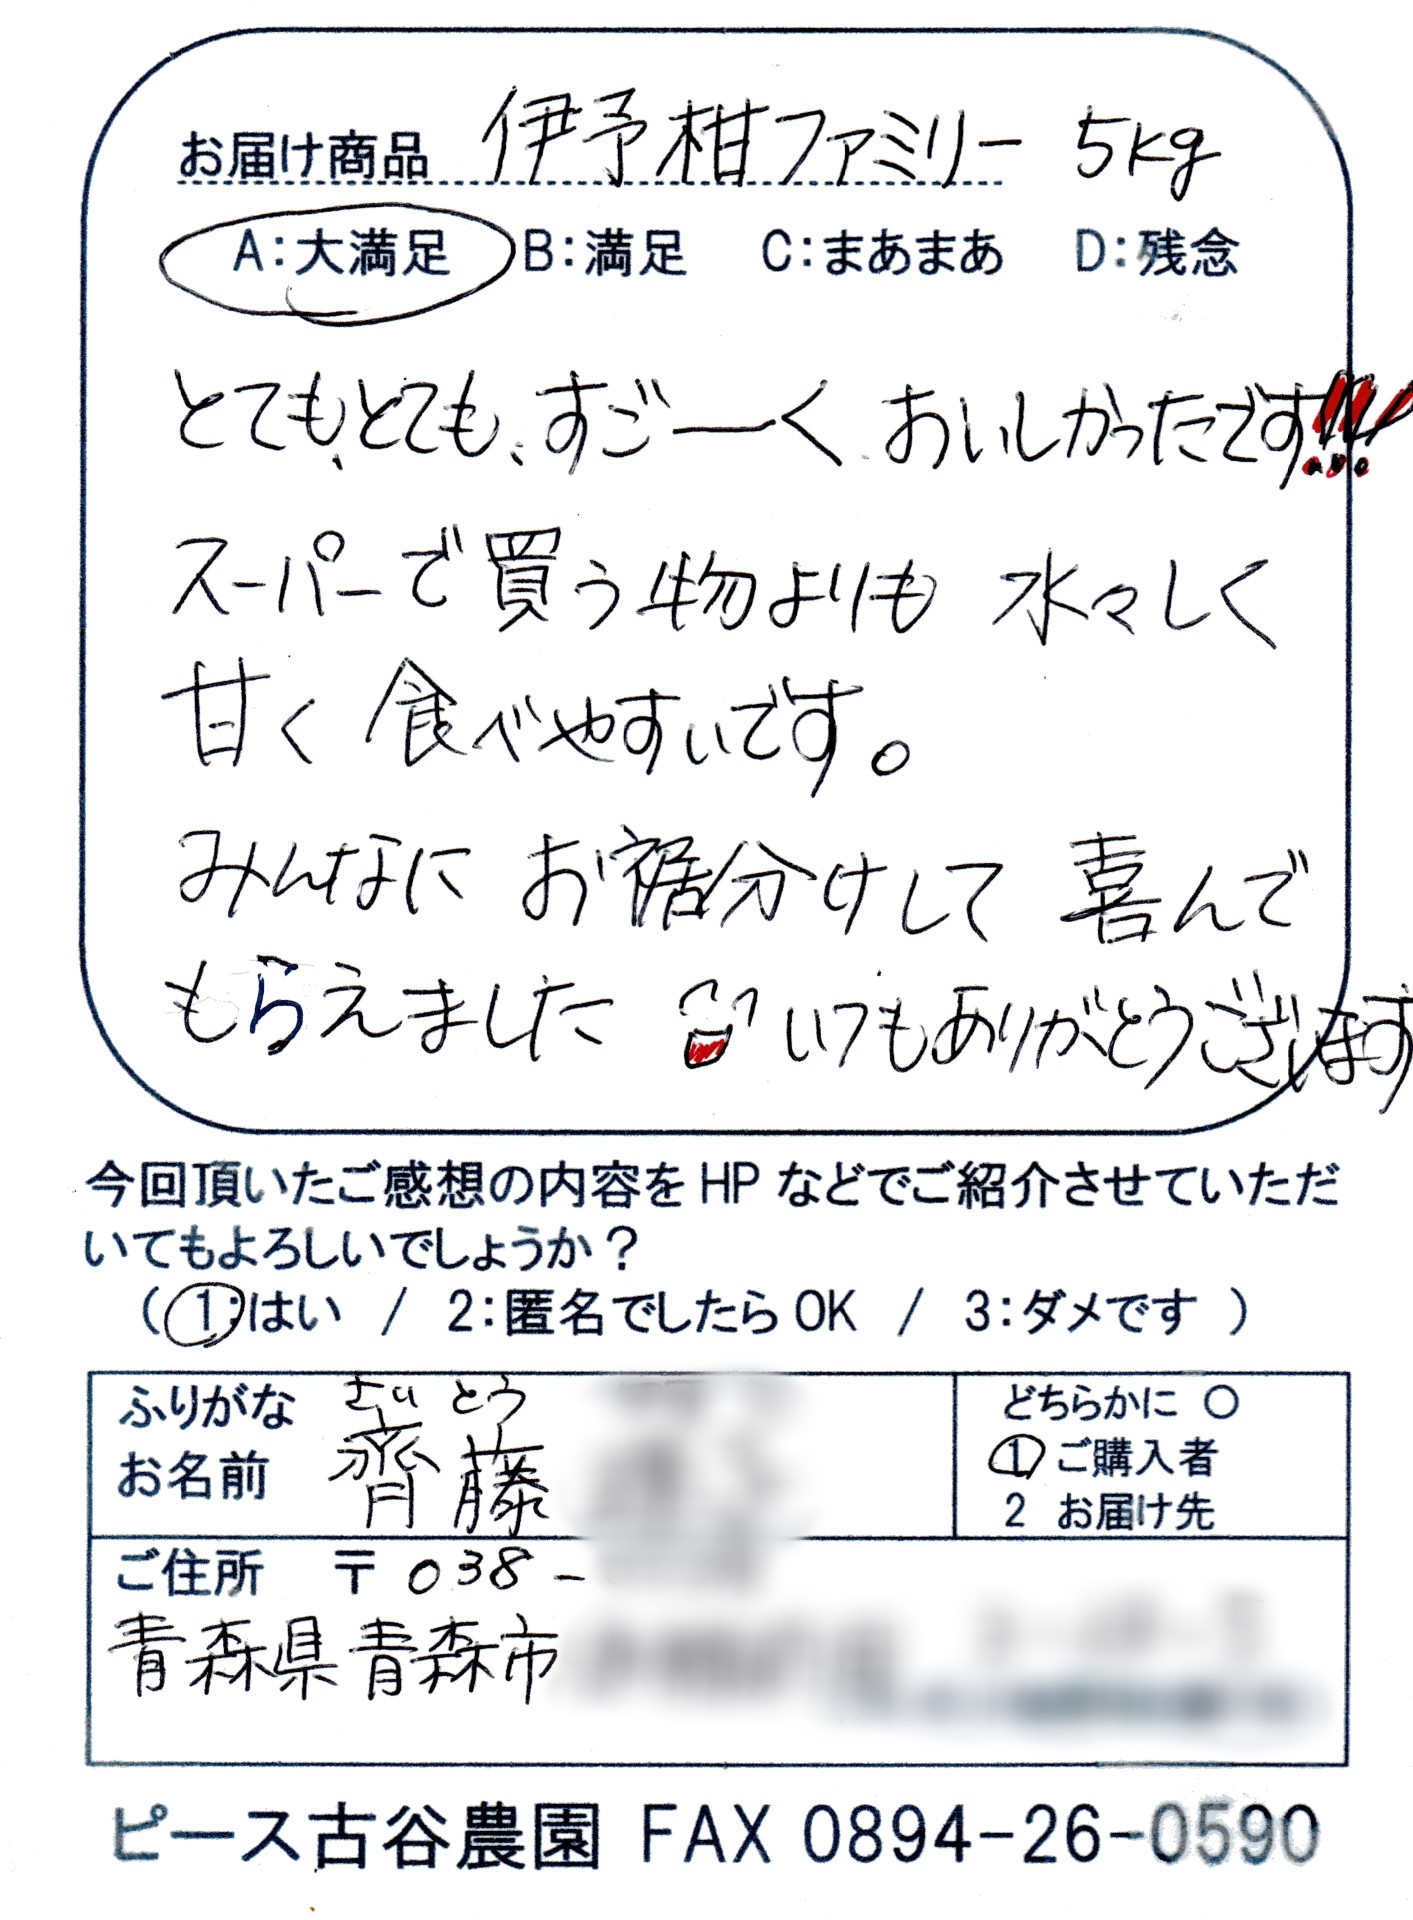 お届け商品 伊予柑ファミリー 5kg
A:大満足 B:満足 C:まあまあ D:残念
とても、とても、すごーく おいしかったです!!!
スーパーで買う物よりも 水々しく
甘く 食べやすいです。
みんなに お裾分けして 喜んで
もらえました いつもありがとうございます
今回頂いたご感想の内容をHPなどでご紹介させていただ
いてもよろしいでしょうか？
（ 1:はい / 2:匿名でしたらOK / 3:ダメです ）
ふりがな さいとう
お名前 齊藤
どちらかに ○
1 ご購入者
2 お届け先
ご住所 〒038-
青森県青森市
ピース古谷農園 FAX 0894-26-0590